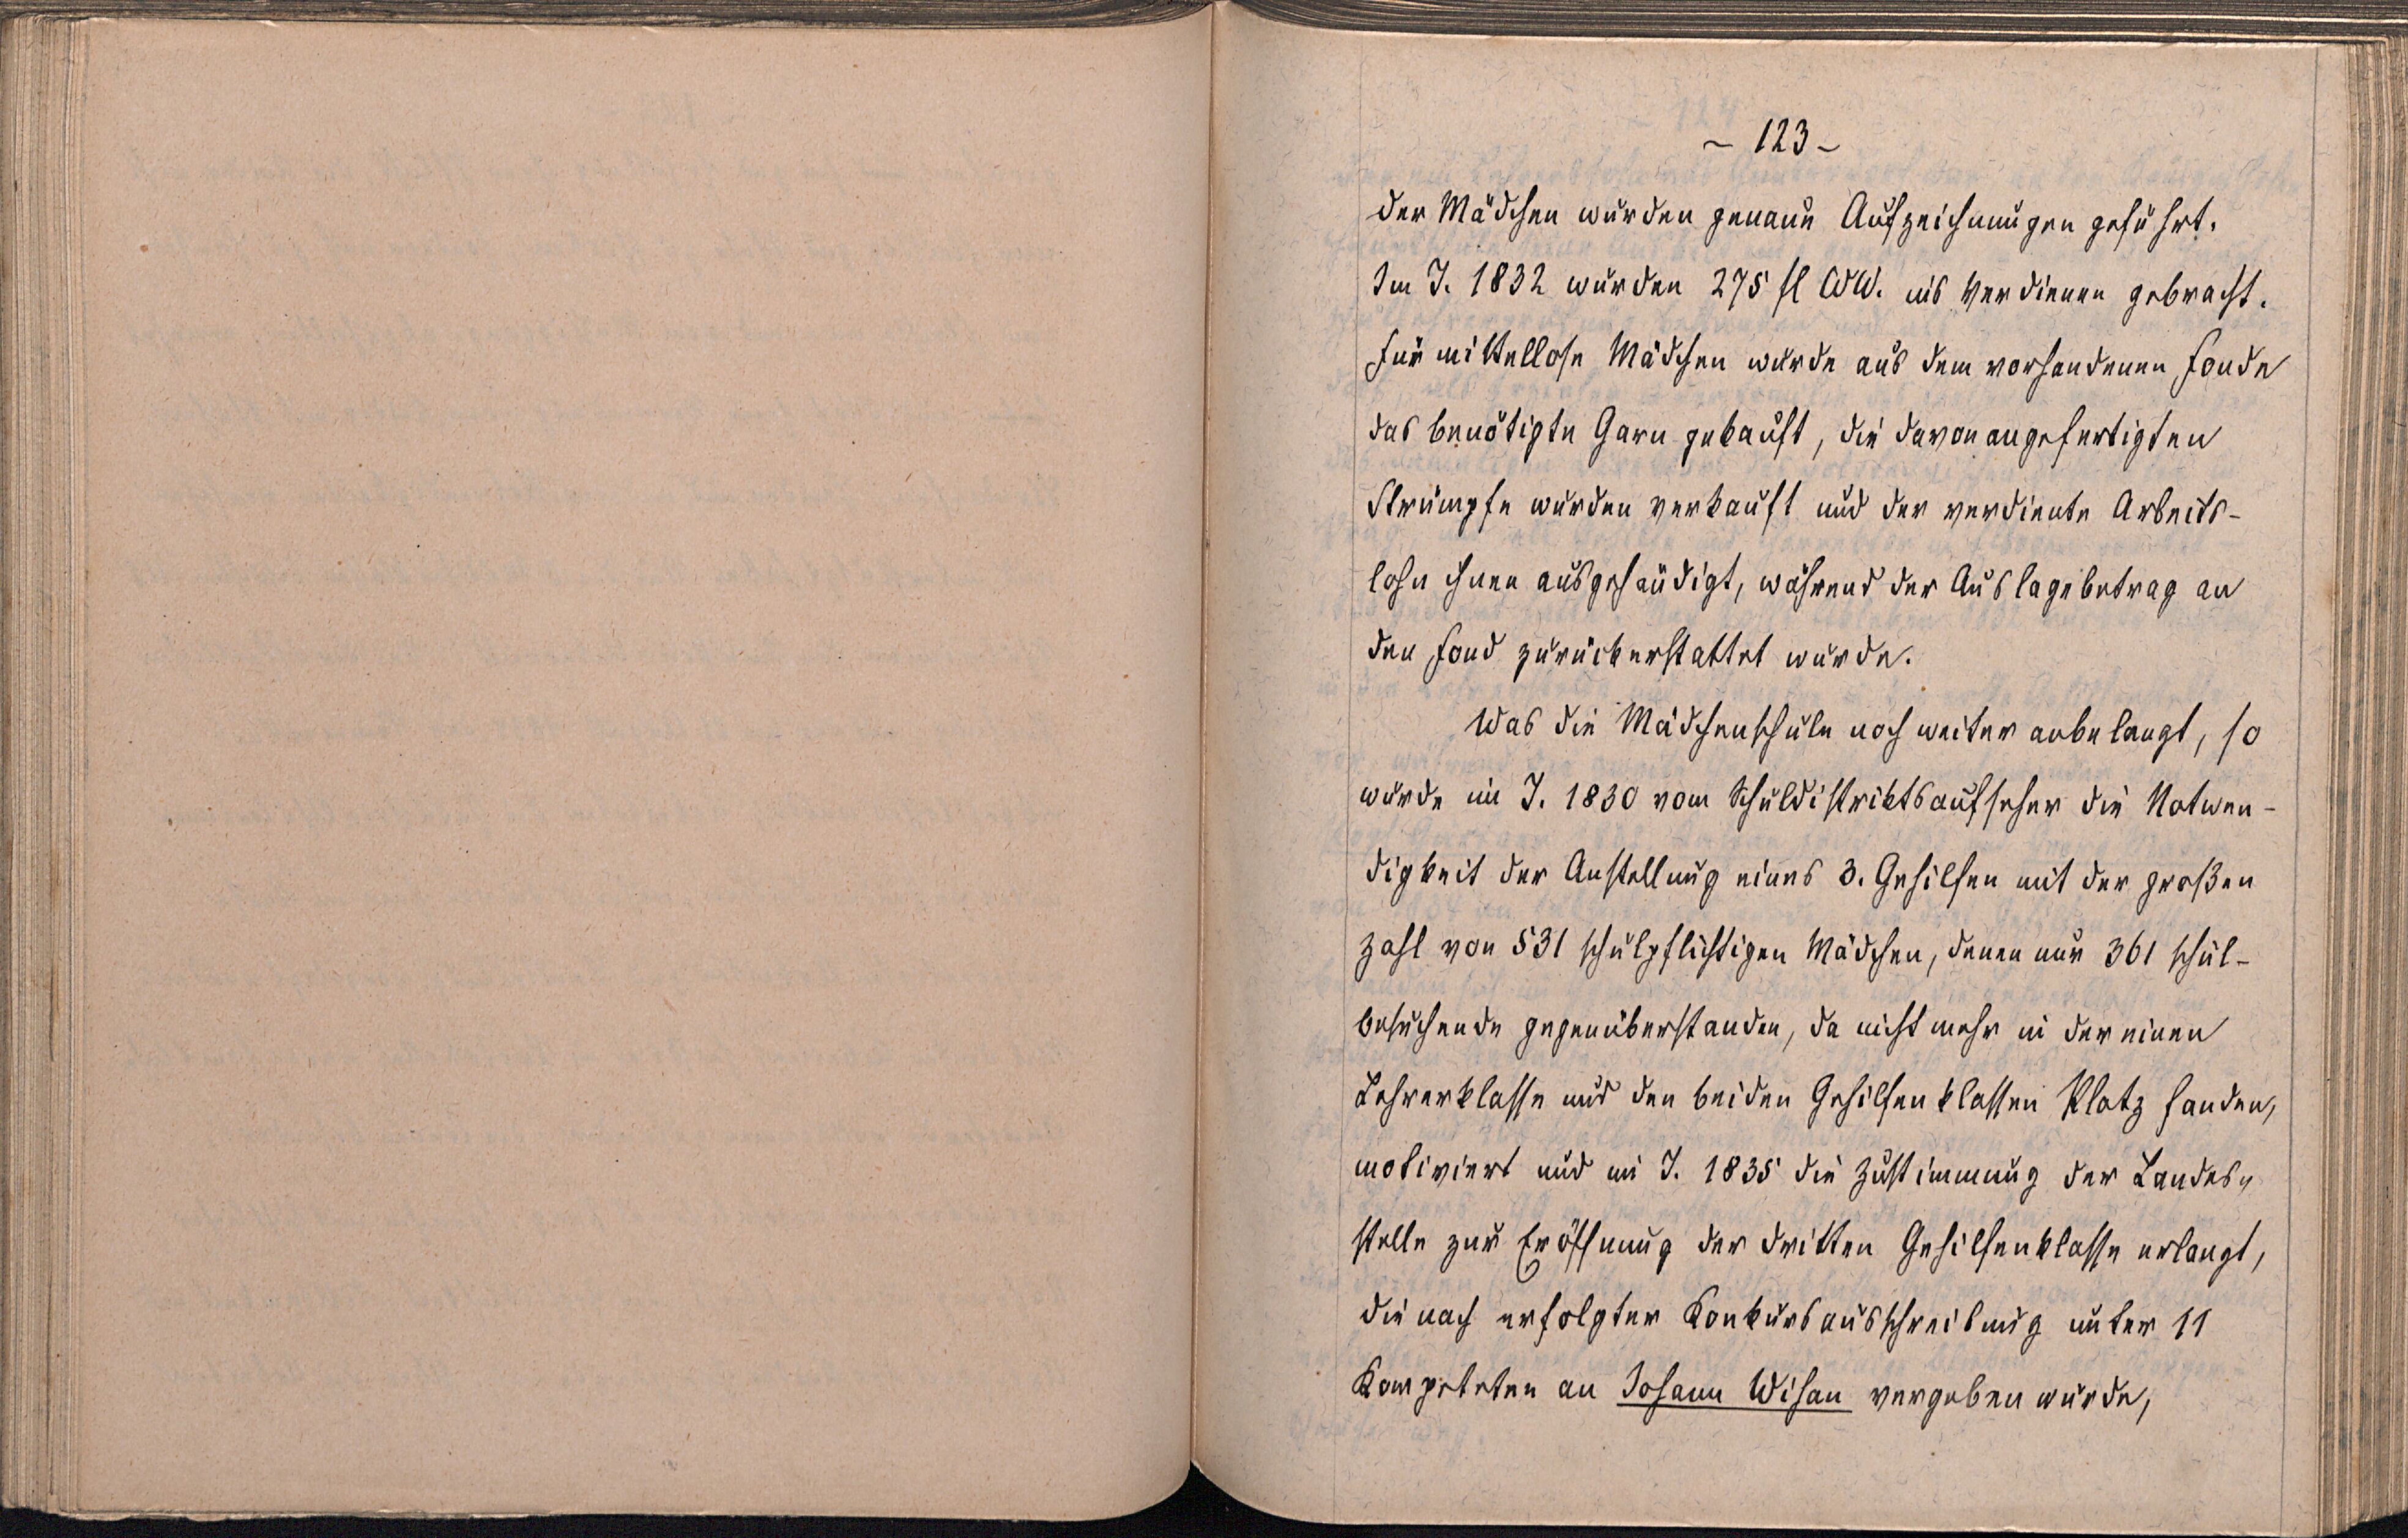 - 123 -
der Mädchen wurden genaue Aufzeichnungen geführt.
Im J. 1832 wurden 275 fl WW. ins Verdienen gebracht.
Für mittellose Mädchen wurde aus dem vorhandenen Fonde
das benötigte Garn gekauft, die davon angefertigten
Strümpfe wurden verkauft und der verdiente Arbeits-
lohn ihnen ausgehändigt, während der Auslagebetrag an
den Fond zurückerstattet wurde.
Was die Mädchenschule noch weiter anbelangt, so
wurde im J. 1830 vom Schuldistriktsaufseher die Notwen-
digkeit der Anstellung eines 3. Gehilfen mit der großen
Zahl von 531 schulpflichtigen Mädchen, denen nur 361 schul-
besuchende gegenüberstanden, da nicht mehr in der einen
Lehrerklasse und den beiden Gehilfenklassen Platz fanden,
motiviert und im J. 1835 die Zustimmung der Landes-
stelle zur Eröffnung der dritten Gehilfenklasse erlangt,
die nach erfolgter Konkursausschreibung unter 11
Kompeteten an Johann Wihan vergeben wurde,